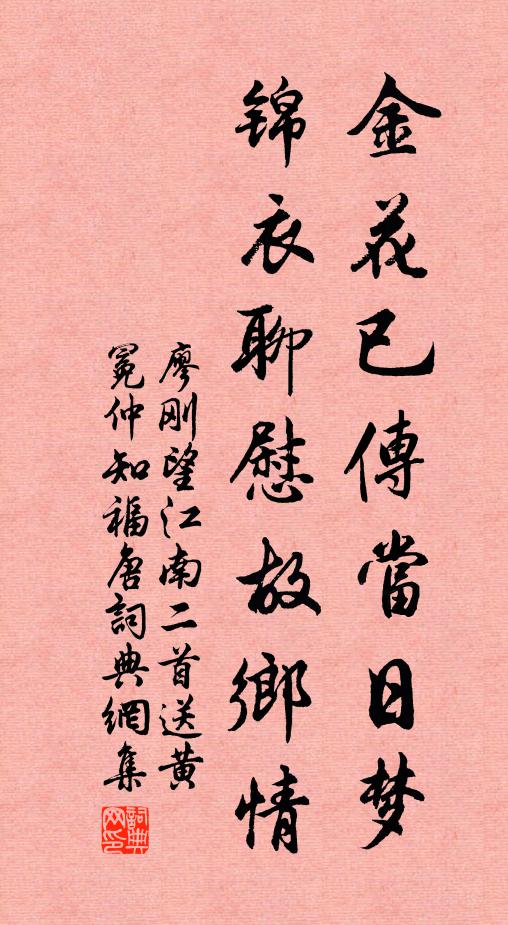 金花已傳當日梦
锦衣聊慰故鄉情
廖刚望江南二首送黄
冕仲知福唐詞典網集
詞典网印